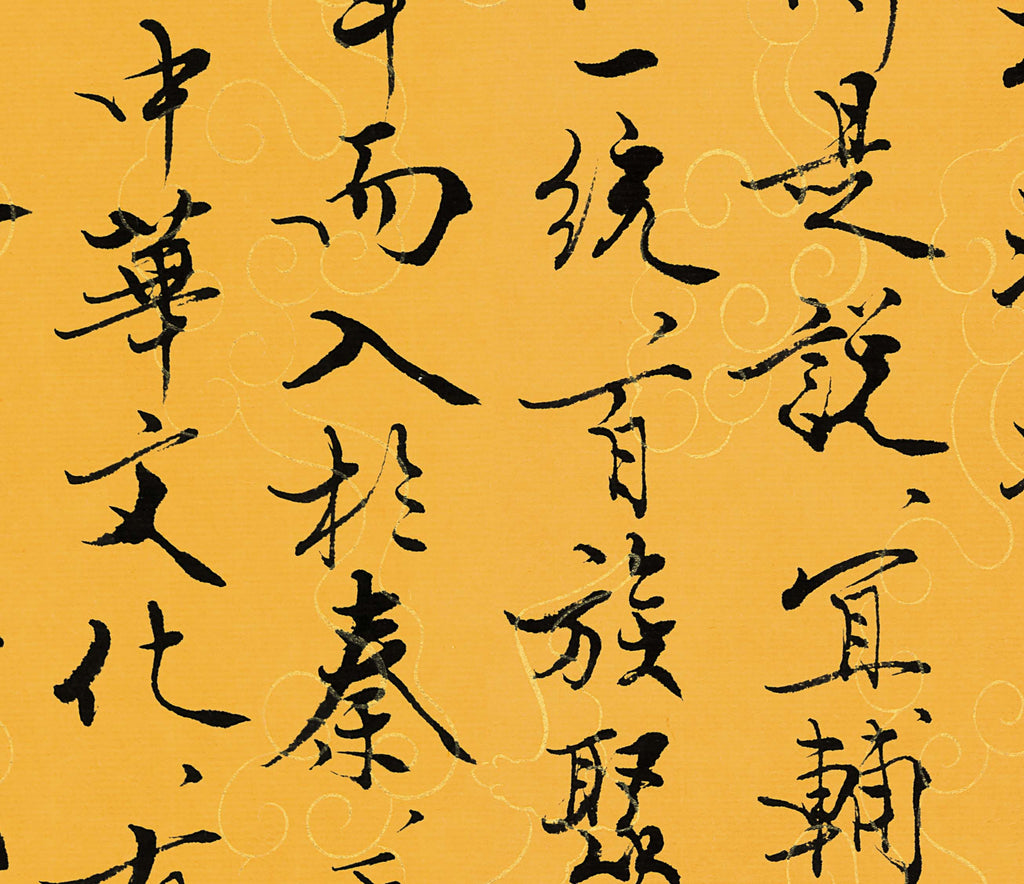 是説、宜輔
一統、百族聚
而入於秦、
中華文化、有